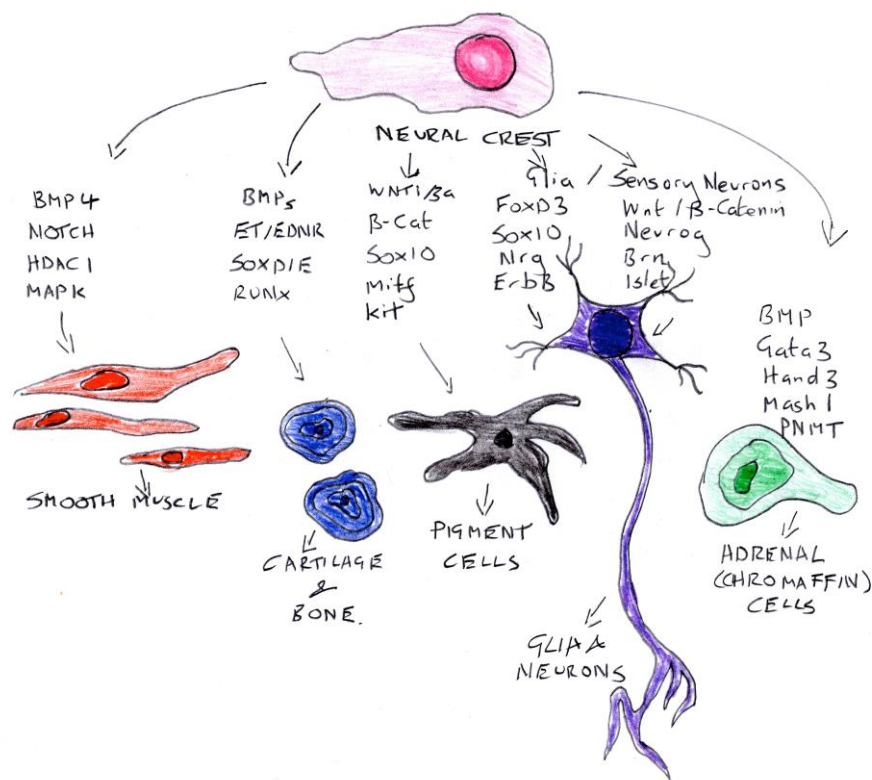 NEURAL CREST
BMP4
NOTCH
HDAC1
MAPK
SMOOTH MUSCLE
BMPs
ET/EDNR
SOXD/E
RUNx
CARTILAGE
&
BONE.
WNT1/3a
β-Cat
Sox10
Mitf
Kit
PIGMENT
CELLS
Glia / Sensory Neurons
FoxD3
Sox10
Nrg
ErbB
Wnt / β-Catenin
Neurog
Brn
Islet
GLIA &
NEURONS
BMP
Gata3
Hand3
Mash1
PNMT
ADRENAL
(CHROMAFFIN)
CELLS